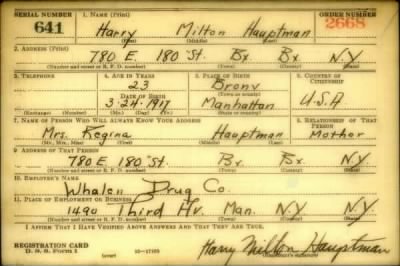 SERIAL NUMBER 1. NAME (Print) ORDER NUMBER
641 Harry Milton Hauptman 2668
(First) (Middle) (Last)
2. ADDRESS (Print)
780 E. 180 St. Bx. Bx. N.Y.
(Number and street or R. F. D. number) (Town) (County) (State)
3. TELEPHONE 4. AGE IN YEARS 5. PLACE OF BIRTH 6. COUNTRY OF CITIZENSHIP
23 Bronx
DATE OF BIRTH (Town or county)
3-24-1917 Manhattan U.S.A.
(Exchange) (Number) (Mo.) (Day) (Yr.) (State or country)
7. NAME OF PERSON WHO WILL ALWAYS KNOW YOUR ADDRESS 8. RELATIONSHIP OF THAT PERSON
Mrs. Regina Hauptman Mother
(Mr., Mrs., Miss) (First) (Middle) (Last)
9. ADDRESS OF THAT PERSON
780 E. 180 St. Bx. Bx. N.Y.
(Number and street or R. F. D. number) (Town) (County) (State)
10. EMPLOYER'S NAME
Whalen Drug Co.
11. PLACE OF EMPLOYMENT OR BUSINESS
1490 Third Av. Man. N.Y. N.Y.
(Number and street or R. F. D. number) (Town) (County) (State)
I AFFIRM THAT I HAVE VERIFIED ABOVE ANSWERS AND THAT THEY ARE TRUE.
REGISTRATION CARD
D. S. S. Form 1 (over) Harry Milton Hauptman
(Registrant's signature)